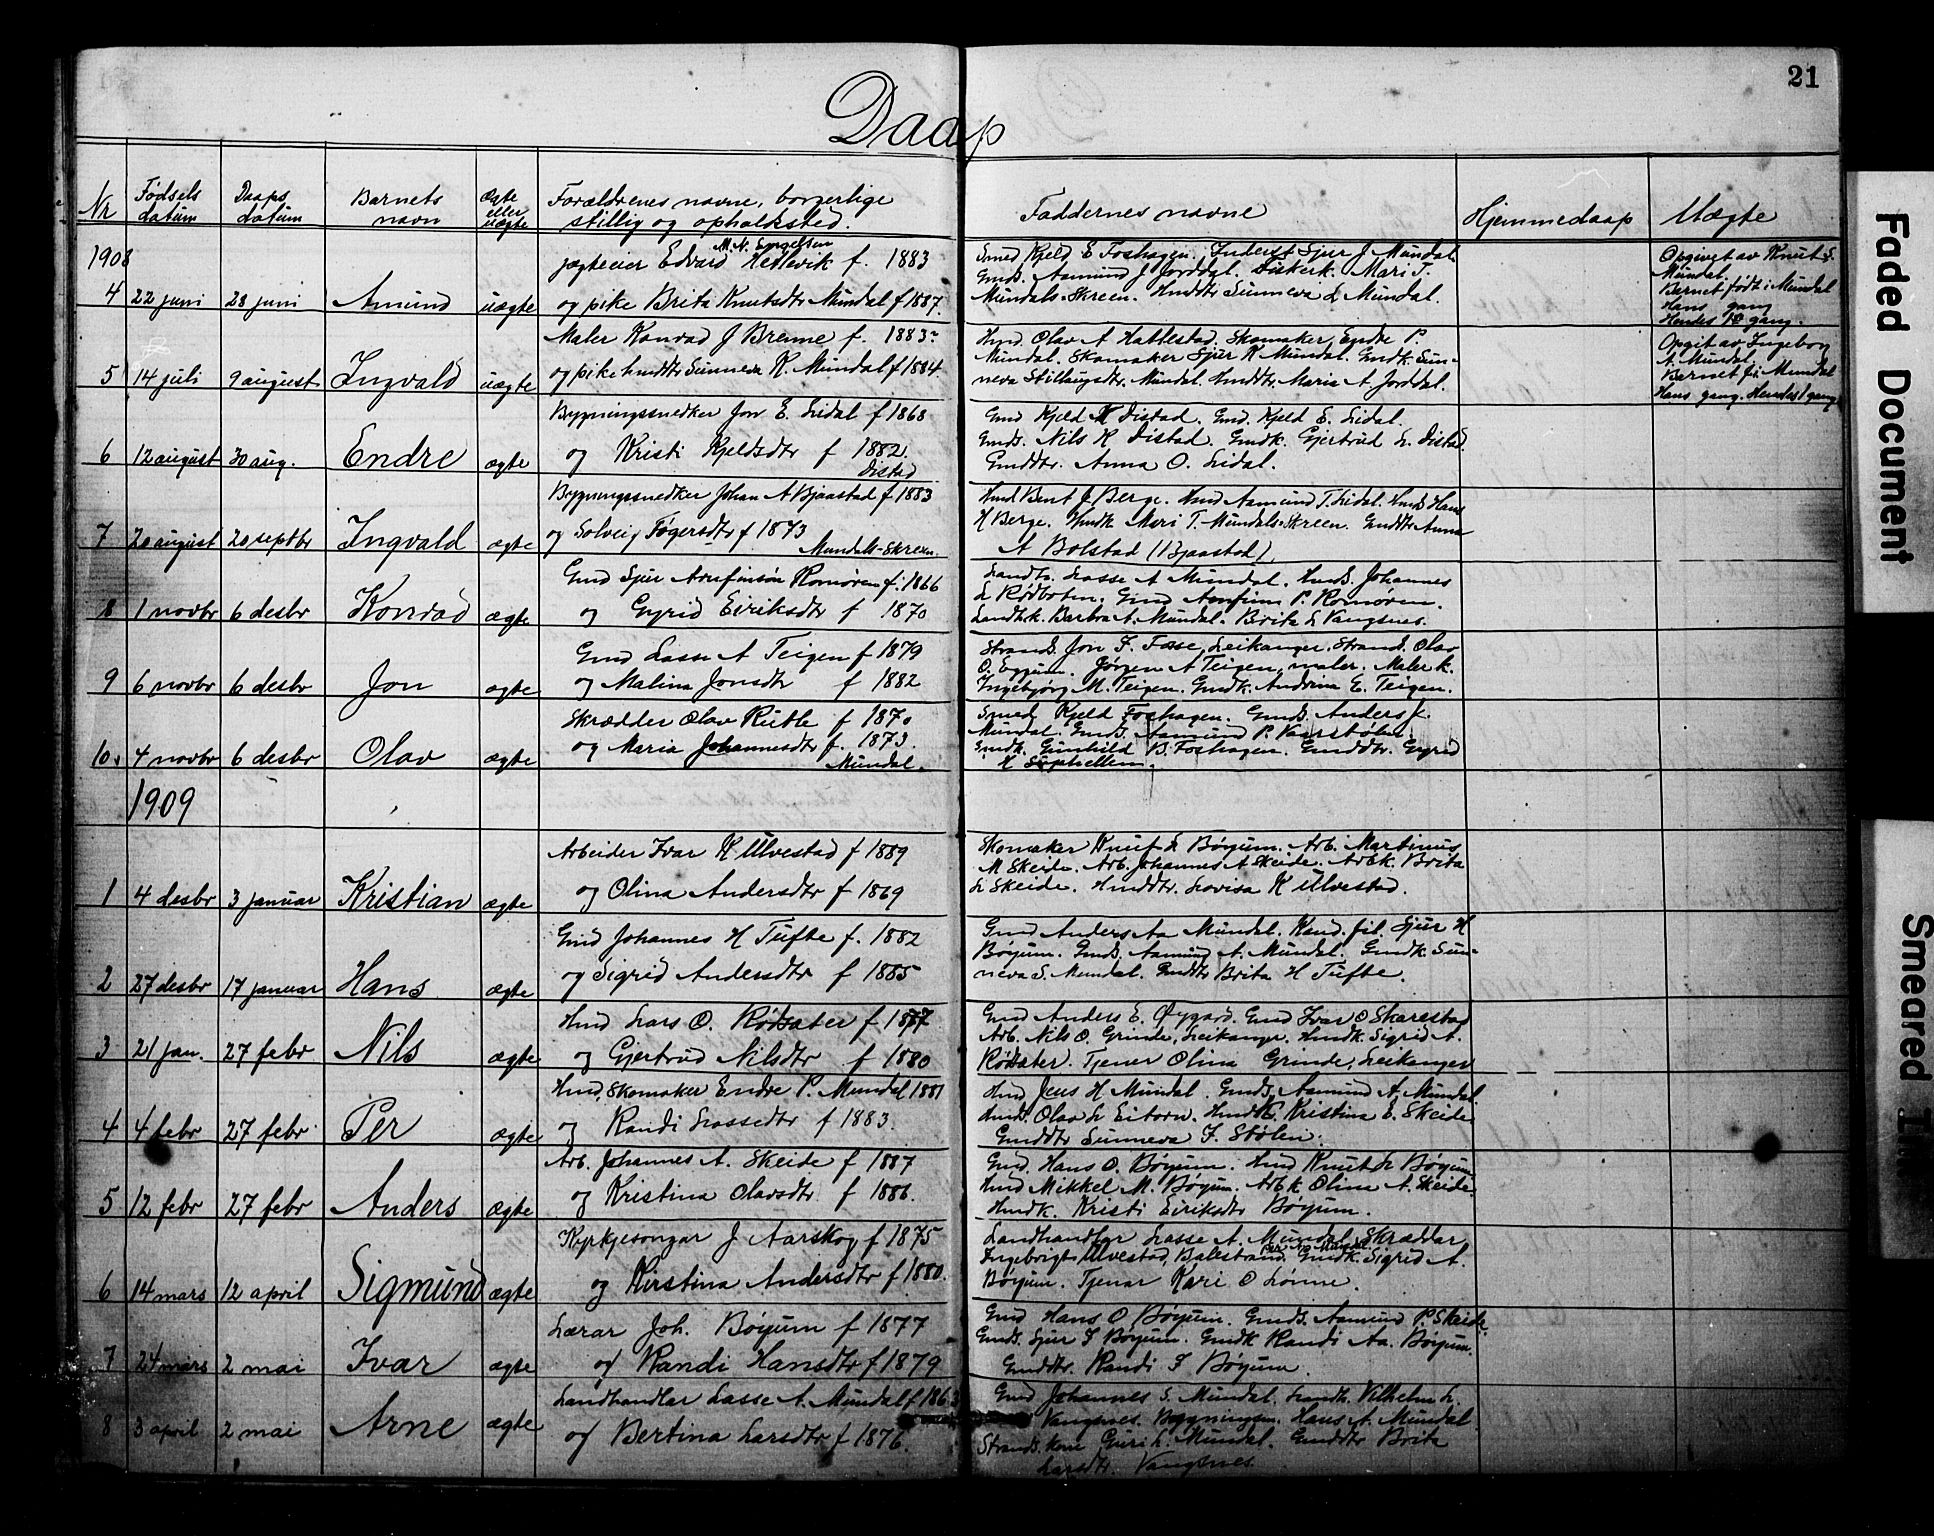 21
Daap
Nr
Fødsels datum
Daaps datum
Barnets navn
Ægte eller uægte
Forældrenes navne, borgerlige stillig og opholdssted.
Faddernes navne
Hjemmedaap
Uægte
1908
4 22 juni 28 juni Amund uægte
M. N. Engelsen
Jægteeier Edvard Hellevik f. 1883
og pike Brita Knutsdtr Mundal f 1887.
Smed Kjeld E Foshagen. Inderst Sjur J Mundal
Gmds. Aamund J Jorddal. Mari T.
Mundals-Skreen. Hmddtr Sunneva L Mundal.
Opgivet av Knut S.
Mundal.
Barnet født i Mundal
Hans gang
Hendes 1e gang.
5 14 juli 9 august Ingvald uægte
Maler Konrad J Breme f. 1883
og pike hmddtr Sunneva K. Mundal f 1884.
Hmd. Olav A Hatlestad. Skomaker Endre P.
Mundal. Skomaker Sjur K Mundal. Gmdk. Sun-
neva Stillaugsdtr. Mundal. Hmddtr Maria A. Jorddal.
Opgit av Ingeborg
A. Mundal.
Barnet f. i Mundal
Hans gang. Hendes 1 gang
6 12 august 30 aug. Endre ægte
Bygningssnedker Jon E. Lidal f 1868
og Kristi Kjeldsdtr f 1882.
Distad
Gmd Kjeld N Distad. Gmd. Kjeld E. Lidal.
Gmds. Nils K Distad. Gmdk. Gjertrud L. Distad.
Gmddtr. Anna O. Lidal.
7 20 august 20 septbr Ingvald ægte
Bygningssnedker Johan A Bjaastad f. 1883
og Solveig Føgersdtr f 1873
Mundals-Skreen.
Hmd Bent J Berge. Hmd Aamund T. Lidal. Hmds Hans
H Berge. Hmdk Mari T. Mundals-Skreen. Gmddtr Anna
A Bolstad (Bjaastad).
8 1 novbr 6 desbr Konrad ægte
Gmd Sjur Arnfinsön Romøren f. 1866
og Gyrid Eiriksdtr f 1870
Landh. Lasse A Mundal. Hmds. Johannes
L Rødboten. Gmd Arnfinn P. Romøren.
Landhk. Barbra A. Mundal. Brita L Vangsnes.
9 6 novbr 6 desbr Jon ægte
Gmd Lasse A Teigen f 1879
og Malina Jonsdtr f 1882
Strands. Jon F. Fosse, Leikanger. Strands. Olav
O. Eggum. Jørgen A Teigen, maler. Maler k.
Ingebjørg M. Teigen. Gmdk. Andrina E. Teigen.
10. 4 novbr 6 desbr Olav ægte
Skrædder Olav Rutle f 1870
og Maria Johannesdtr f. 1873.
Mundal.
Smed Kjeld Foshagen. Gmds. Anders J.
Mundal. Gmds. Aamund P.
Gmdk. Gunhild B. Foshagen. Gmddtr. Gyrid
H Suphellen.
1909
1 4 desbr 3 januar Kristian ægte
Arbeider Ivar K Ulvestad f 1889
og Olina Andersdtr f 1869
Skomaker Knut L Bøyum. Arb. Martinus
M Skeide. Arb. Johannes A. Skeide. Arbk. Brita
L Skeide. Hmddtr. Lovisa K Ulvestad.
2 27 desbr 17 januar Hans ægte
Gmd Johannes H Tufte f. 1882
og Sigrid Andersdtr f 1885
Gmd Anders Aa Mundal. Kand. fil. Sjur H
Bøyum. Gmds. Aamund A. Mundal. Gmdk. Sun-
neva S. Mundal. Gmddtr Brita H Tufte.
3 21 jan. 27 febr Nils ægte
Hmd Lars O. Rødsæter f 1877
og Gjertrud Nilsdtr f 1880
Gmd Anders E. Øygard. Gmd Ivar O Skarestad
Arb. Nils O. Grinde, Leikanger. Hmdk. Sigrid A.
Rødsæter. Tjener Olina Grinde, Leikanger
4 4 febr 27 febr Per ægte
Hmd, Skomaker Endre P. Mundal 1881
og Randi Lassedtr f 1883.
Hmd Jens H Mundal. Gmds. Aamund A. Mundal
Hmds. Olav L Eitorn. Hmdk. Kristina E. Skeide.
Gmddtr Sunneva I. Stølen.
5 12 febr 27 febr Anders ægte
Arb. Johannes A. Skeide f 1887
og Kristina Olavsdtr f 1886.
Gmd. Hans O. Bøyum. Hmd Knut L Bøyum
Hmd Mikkel M. Bøyum. Arb k Olina A. Skeide.
Hmdk. Kristi Eiriksdtr Bøyum.
6 14 mars 12 april Sigmund ægte
Kyrkjesongar J Aarskog f 1875
og Kirstina Andersdtr f 1880.
Landhandlar Lasse A. Mundal. Skræddar
Ingebrigt Ulvestad, Balestrand. Per Mundal. Gmdk. Sigrid A.
Bøyum. Tjenar Kari O Lønne.
7 24 mars 2 mai Ivar ægte
Lærar Joh. Bøyum f 1877
og Randi Hansdtr f 1879
Gmd Hans O Bøyum. Gmds. Aamund P. Skeide.
Gmds. Sjur I Bøyum. Gmdk Randi Aa. Bøyum.
Gmddtr. Randi I Bøyum.
8 3 april 2 mai Arne ægte
Landhandlar Lasse A. Mundal f 1863
og Bertina Larsdtr f 1876.
Gmd Johannes S. Mundal. Landh. Vilhelm L.
Vangsnes. Bygningssn. Hans A. Mundal
Strands. kone Guri L. Mundal. Gmddtr Brita
Larsdtr. Vangsnes.
Faded Document
Smeared